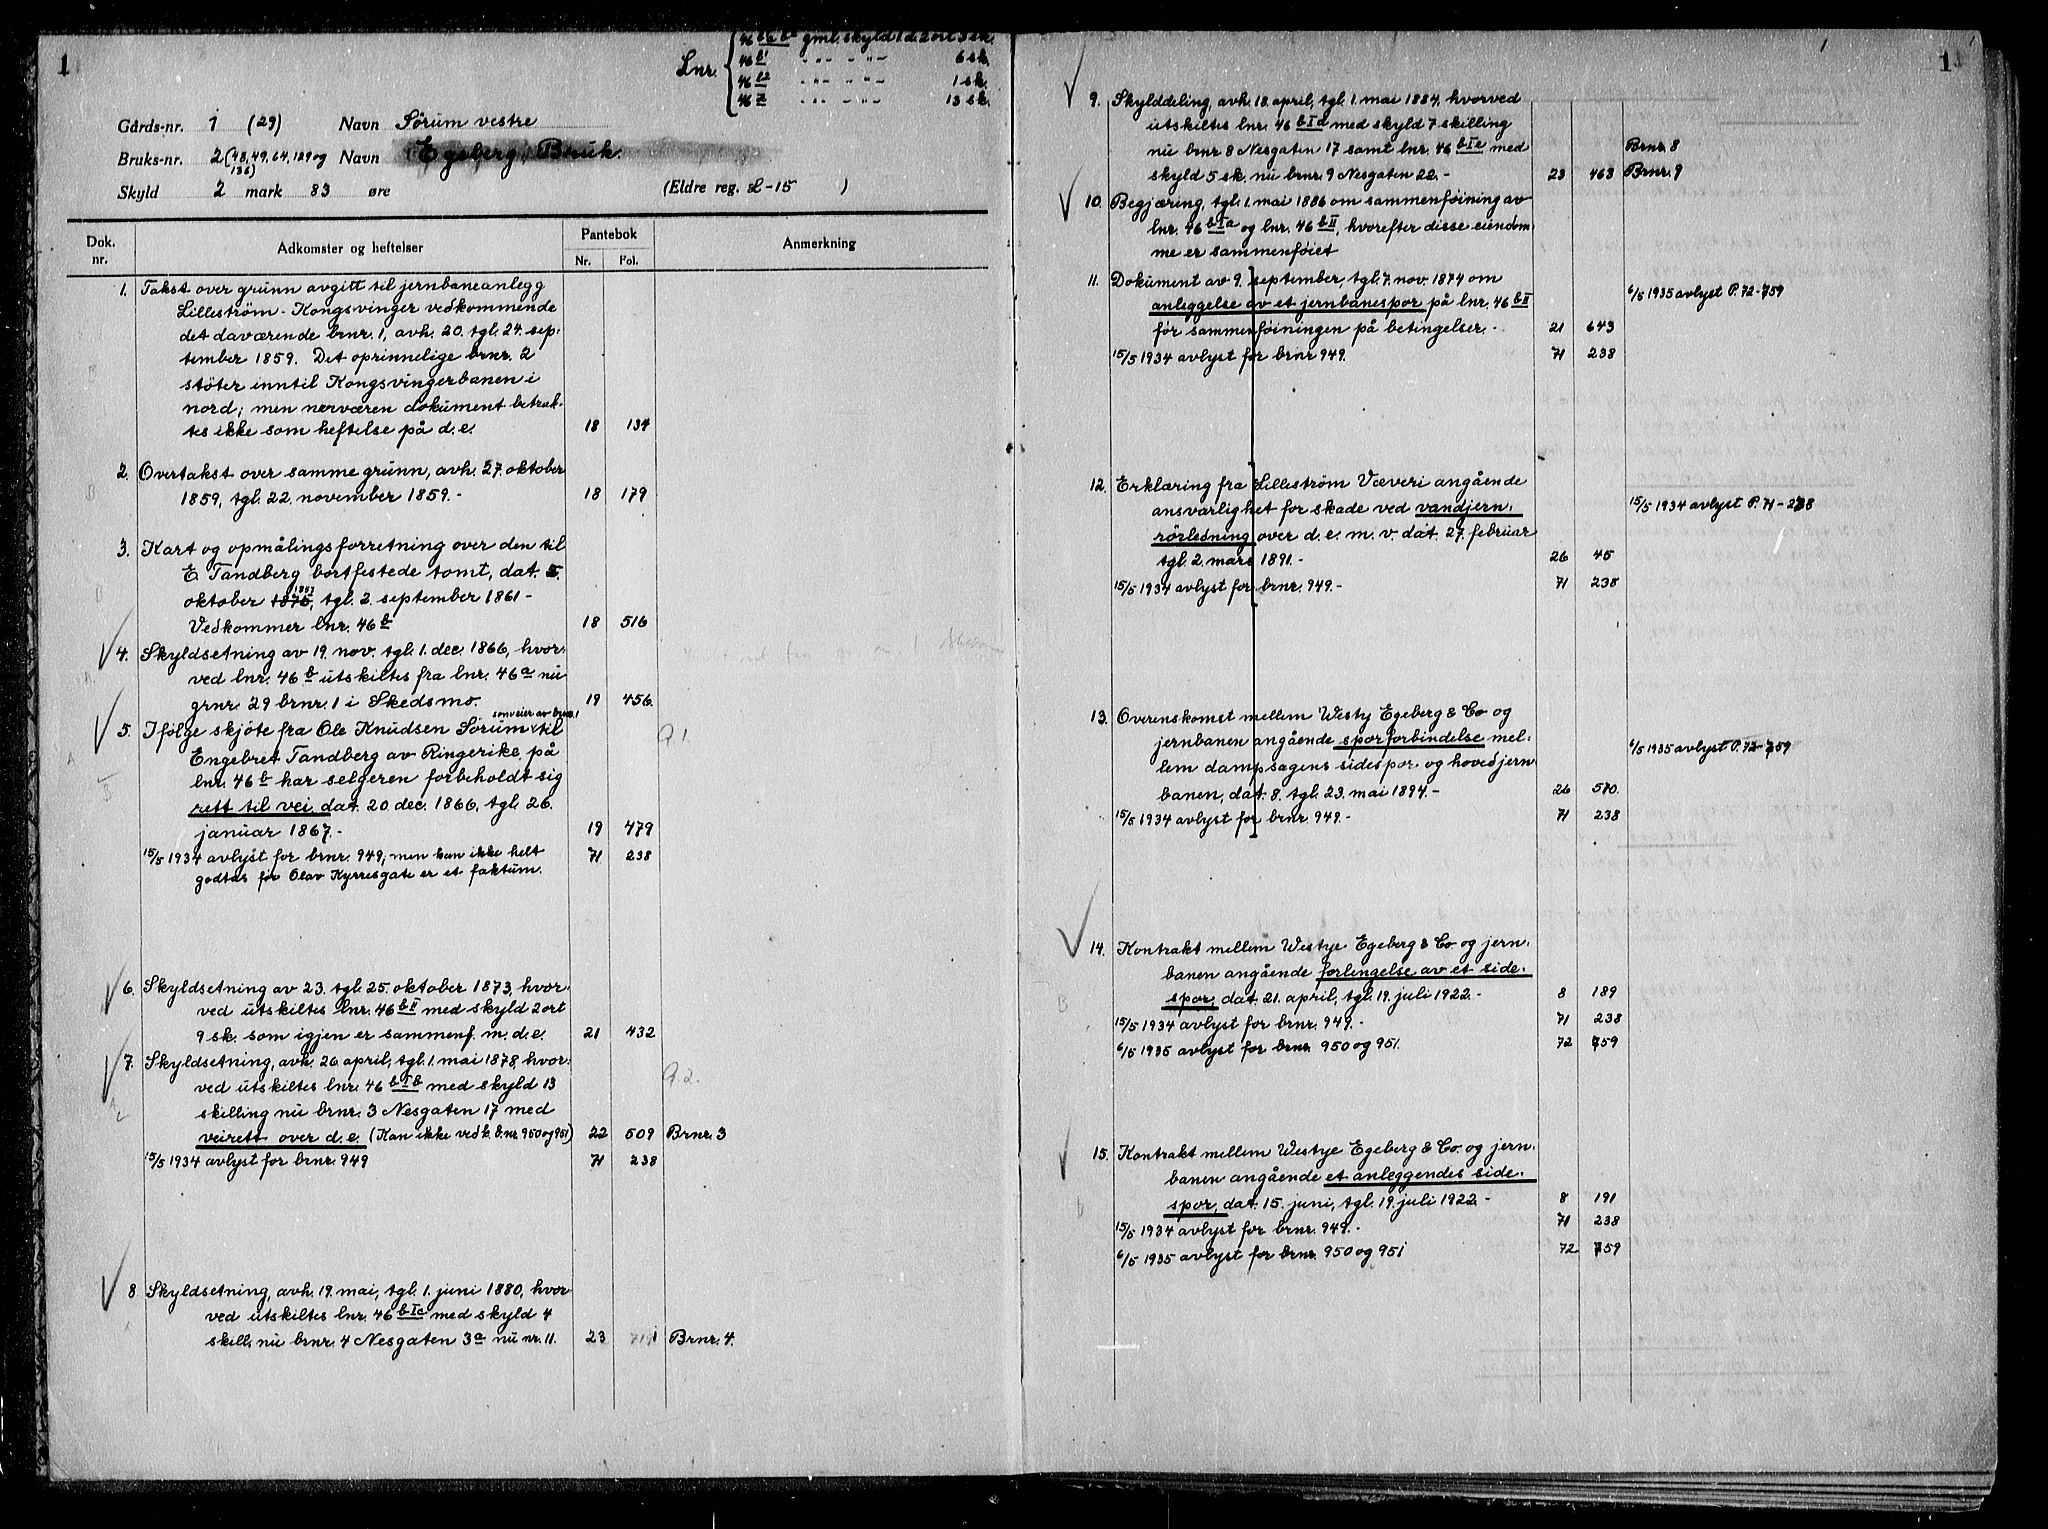 1
Lnr. 46 gml. skyld 1 d. 2 ort 3 sk.
46 b1 " " - " - 6 sk.
46 b2 " " - " - 1 sk.
46 " " - " - 13 sk.
Gårds-nr. 1 (29) Navn Sörum vestre
Bruks-nr. 2 (48, 49, 64, 129 og 136) Navn Egeberg, Bruk.
Skyld 2 mark 83 øre (Eldre reg. L-15 )
Dok. nr. Adkomster og heftelser Pantebok Nr. Fol. Anmerkning
1. Takst over grunn avgitt til jernbaneanlegg
Lilleström - Kongsvinger vedkommende
det daværende brnr. 1, avh. 20. tgl. 24. sep-
tember 1859. Det oprinnelige brnr. 2
stöter inntil Kongsvingerbanen i
nord; men nerværen dokument betrak-
tes ikke som heftelse på d. e. 18 134
2. Overtakst over samme grunn, avh. 27. oktober
1859, tgl. 22. november 1859.- 18 179
3. Kart og opmålingsforretning over den til
E Tandberg bortfestede tomt, dat. 5.
oktober 1875, tgl. 2. september 1861 -
Vedkommer lnr. 46 b 18 516
4. Skyldsetning av 19. nov. tgl. 1. dec. 1866, hvor-
ved lnr. 46 b utskiltes fra lnr. 46 a nu
grnr. 29 brnr. 1 i Skedsmo. 19 456
som eier av brnr. 1
5. Ifölge skjöte fra Ole Knudsen Sörum til
Engebret Tandberg av Ringerike på
lnr. 46 b har selgeren forbeholdt sig
rett til vei, dat. 20. dec. 1866, tgl. 26.
januar 1867.- 19 479
15/5 1934 avlyst for brnr. 949; men kan ikke helt 71 238
godtas for Olav Kyrresgate er et faktum.
6. Skyldsetning av 23. tgl. 25. oktober 1873, hvor-
ved utskiltes lnr. 46 b II med skyld 2 ort
9 sk. som igjen er sammenf. m. d. e. 21 432
7. Skyldsetning, avh. 26. april, tgl. 1. mai 1878, hvor-
ved utskiltes lnr. 46 b I b med skyld 13
skilling nu brnr. 3 Nesgaten 17 med
veirett over d. e. (Kan ikke vedk. b.nr. 950 og 951) 22 509 Brnr. 3
15/5 1934 avlyst for brnr. 949 71 238
8. Skyldsetning, avh. 19. mai, tgl. 1. juni 1880, hvor-
ved utskiltes lnr. 46 b I c med skyld 4
skill. nu brnr. 4 Nesgaten 3a nu nr. 11. 23 Brnr. 4.
1
9. Skylddeling, avh. 18. april, tgl. 1. mai 1884, hvorved
utskiltes lnr. 46 b I d med skyld 7 skilling
nu brnr 8 Nesgaten 17 samt lnr. 46 b I e med Brnr. 8
skyld 5 sk. nu brnr. 9 Nesgaten 22.- 23 463 Brnr. 9
10. Begjæring, tgl. 1. mai 1886 om sammenföining av
lnr. 46 b I a og lnr. 46 b II, hvorefter disse eiendom-
me er sammenföiet
11. Dokument av 9. september, tgl. 7. nov. 1874 om
anleggelse av et jernbanespor på lnr. 46 b II 6/5 1935 avlyst P. 72-759
för sammenföiningen på betingelser.- 21 643
15/5 1934 avlyst for brnr 949. 71 238
12. Erklæring fra Lilleström Væveri angående
ansvarlighet for skade ved vandjern- 15/5 1934 avlyst P. 71-238
rörledning over d. e. m. v. dat. 27. februar
tgl. 2. mars 1891.- 26 45
15/5 1934 avlyst for brnr. 949.- 71 238
13. Overenskomst mellem Westy Egeberg & Co og
jernbanen angående sporforbindelse mel- 6/5 1935 avlyst P. 72-759
lem dampsagens sidespor og hovedjern-
banen, dat. 8. tgl. 23. mai 1894.- 26 570.
15/5 1934 avlyst for brnr. 949.- 71 238
14. Kontrakt mellem Westye Egeberg & Co. og jern-
banen angående forlengelse av et side-
spor, dat. 21. april, tgl. 19. juli 1922.- 8 189
15/5 1934 avlyst for brnr. 949.- 71 238
6/5 1935 avlyst for brnr. 950 og 951. 72 759
15. Kontrakt mellem Westye Egeberg & Co. og jern-
banen angående et anleggendes side-
spor, dat. 15. juni, tgl. 19. juli 1922.- 8 191
15/5 1934 avlyst for brnr. 949.- 71 238
6/5 1935 avlyst for brnr. 950 og 951 72 759